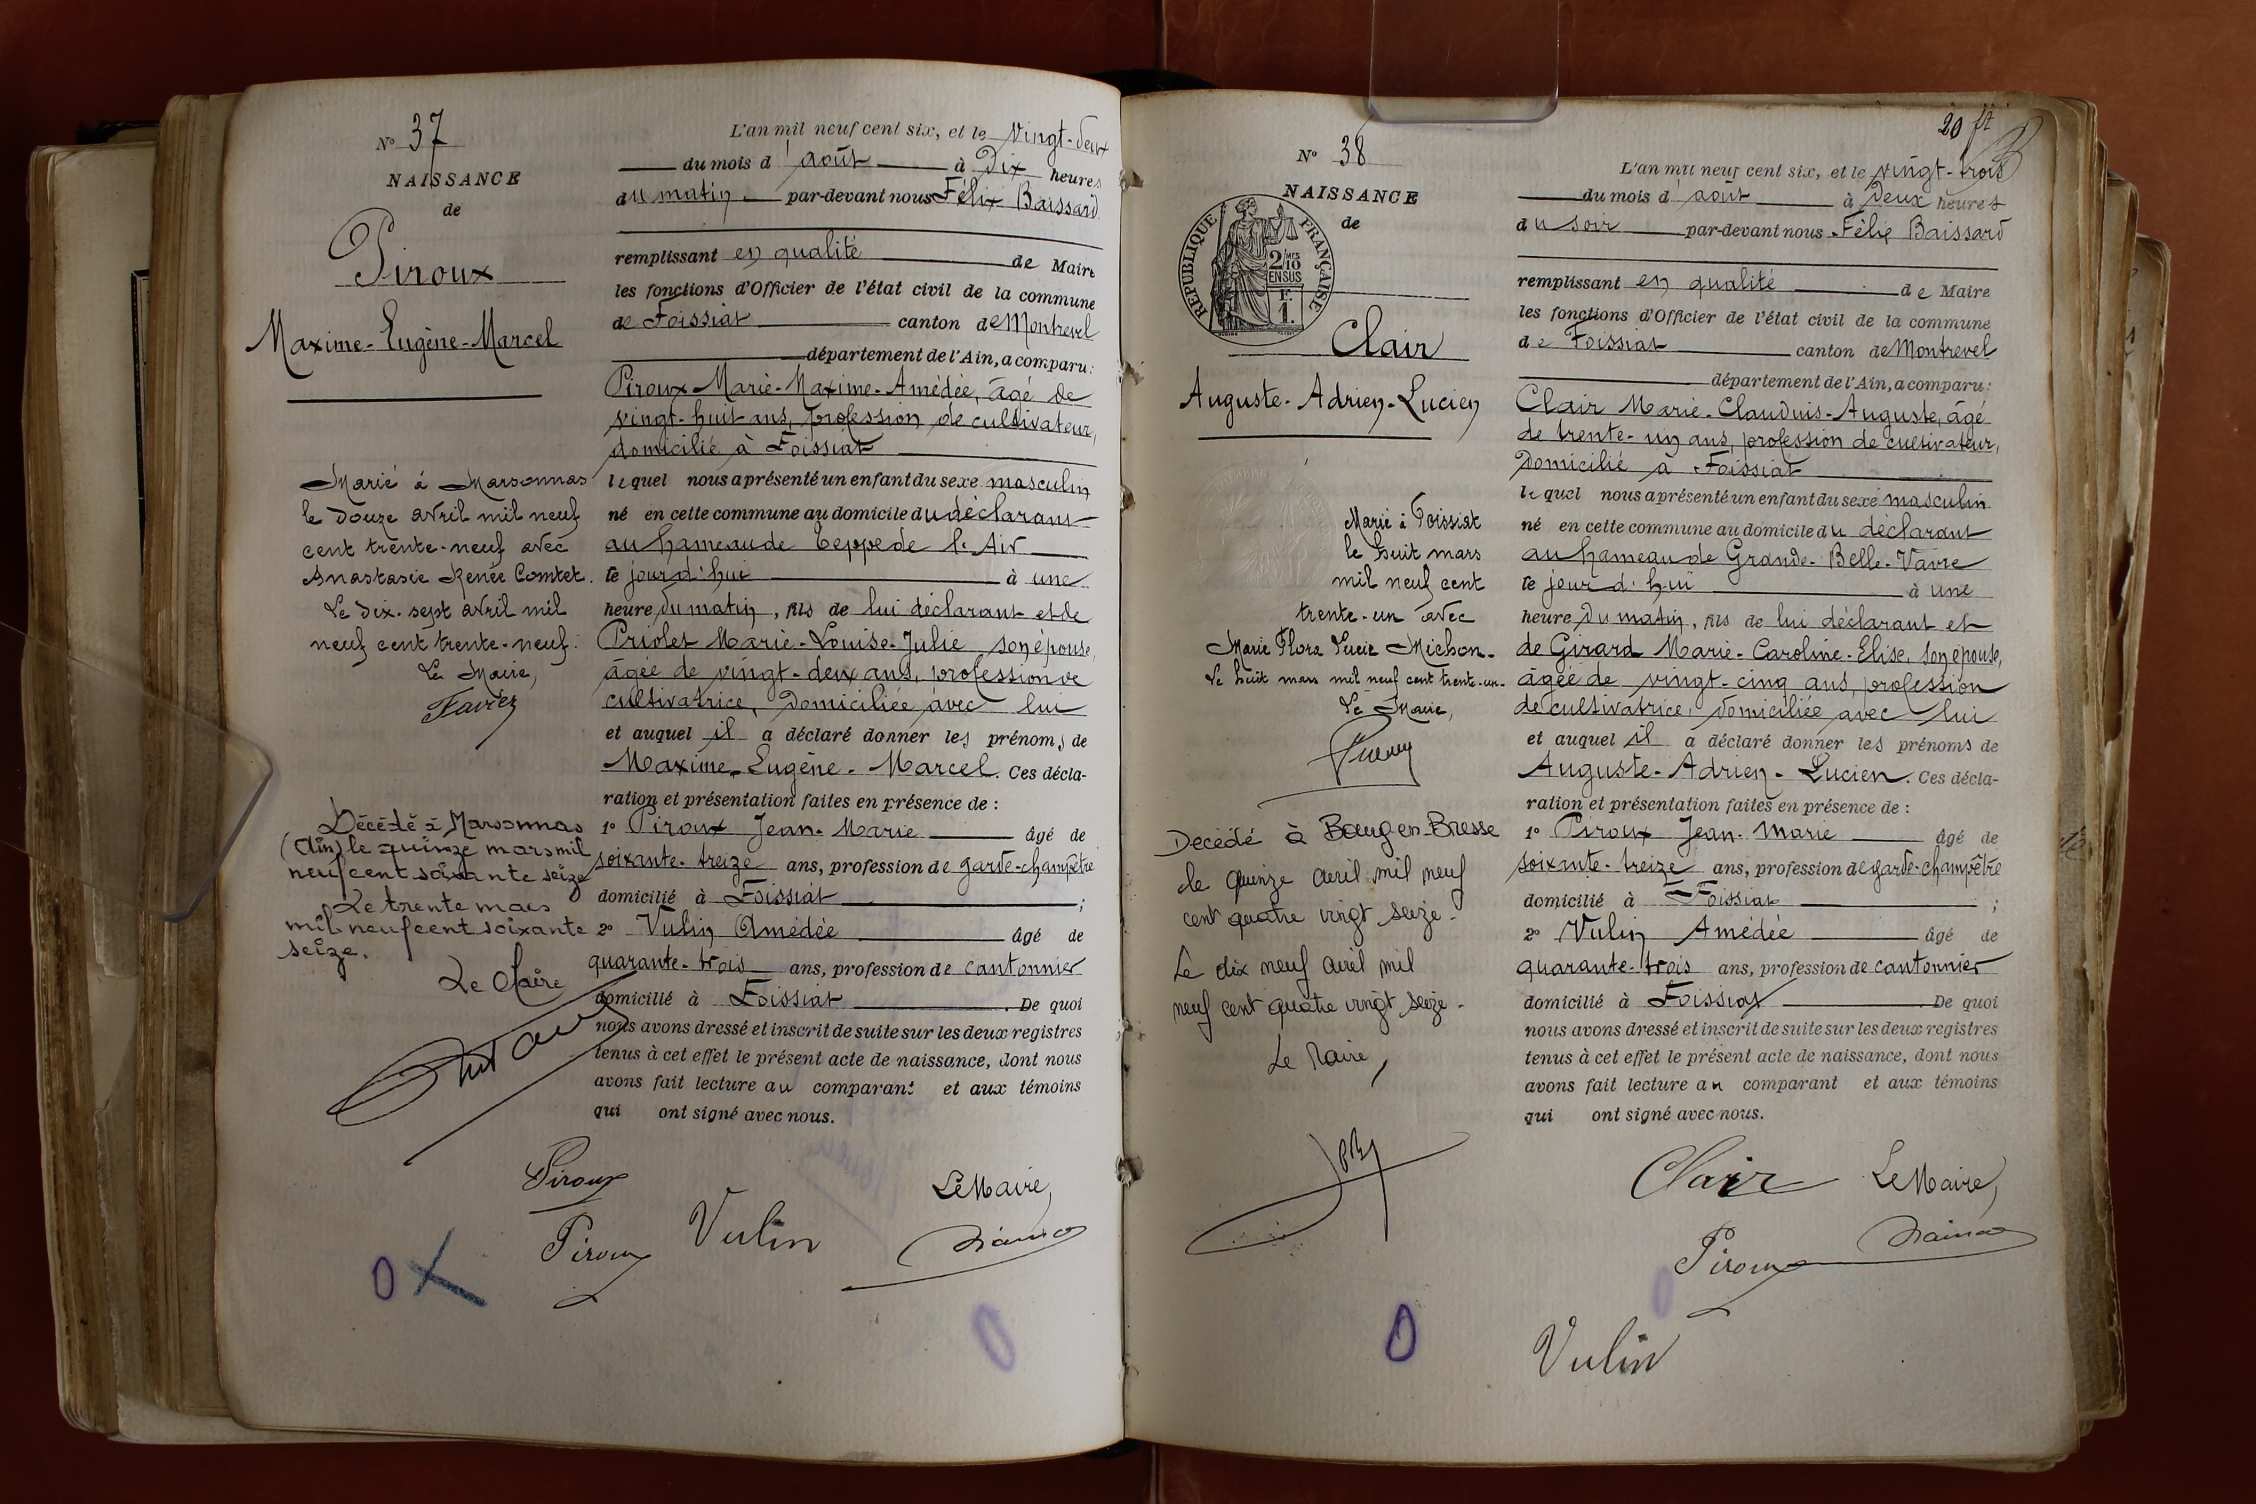 N° 37
NAISSANCE
de
Piroux
Maxime-Eugène-Marcel
Marié à Marsonnas
le douze avril mil neuf
cent trente-neuf avec
Anastasie Renée Comtet.
Le dix-sept avril mil
neuf cent trente-neuf.
Le Maire,
Favier
Décédé à Marsonnas
(Ain) le quinze mars mil
neuf cent soixante seize
Le trente mars
mil neuf cent soixante
seize.
Le Maire
L'an mil neuf cent six, et le vingt-deux
du mois d'août à Dix heures
du matin par-devant nous Félix Baissard
remplissant en qualité de Maire
les fonctions d'Officier de l'état civil de la commune
de Foissiat canton de Montrevel
département de l'Ain, a comparu:
Piroux Marie-Maxime-Amédée, âgé de
vingt-huit ans, profession de cultivateur,
domicilié à Foissiat
lequel nous a présenté un enfant du sexe masculin
né en cette commune au domicile du déclarant
au hameau de Teppe de l'Air
le jour d'hui à une
heure du matin, fils de lui déclarant et de
Priolet Marie-Louise-Julie son épouse,
âgée de vingt-deux ans, profession de
cultivatrice, domiciliée avec lui
et auquel il a déclaré donner les prénoms de
Maxime-Eugène-Marcel. Ces décla-
ration et présentation faites en présence de :
1° Piroux Jean-Marie âgé de
soixante-treize ans, profession de garde-champêtre
domicilié à Foissiat ;
2° Vulin Amédée âgé de
quarante-trois ans, profession de cantonnier
domicilié à Foissiat. De quoi
nous avons dressé et inscrit de suite sur les deux registres
tenus à cet effet le présent acte de naissance, dont nous
avons fait lecture au comparant et aux témoins
qui ont signé avec nous.
Piroux
Le Maire,
Piroux Vulin
20 ft
N° 38
NAISSANCE
de
RÉPUBLIQUE FRANÇAISE
2/10
EN SUS
F.
1.
Clair
Auguste-Adrien-Lucien
Marié à Foissiat
le huit mars
mil neuf cent
trente-un avec
Marie Flora Lucie Michon.
Le huit mars mil neuf cent trente-un.
Le Maire,
Decédé à Bourg en Bresse
le quinze avril mil neuf
cent quatre vingt seize.
Le dix neuf avril mil
neuf cent quatre vingt seize.
Le Maire,
L'an mil neuf cent six, et le vingt-trois
du mois d'août à Deux heures
du soir par-devant nous Félix Baissard
remplissant en qualité de Maire
les fonctions d'Officier de l'état civil de la commune
de Foissiat canton de Montrevel
département de l'Ain, a comparu:
Clair Marie-Claudius-Auguste, âgé
de trente-un ans, profession de cultivateur,
domicilié à Foissiat
lequel nous a présenté un enfant du sexe masculin
né en cette commune au domicile du déclarant
au hameau de Grande-Belle-Vavre
le jour d'hui à une
heure du matin, fils de lui déclarant et
de Girard Marie-Caroline-Elise, son épouse,
âgée de vingt-cinq ans, profession
de cultivatrice, domiciliée avec lui
et auquel il a déclaré donner les prénoms de
Auguste-Adrien-Lucien. Ces décla-
ration et présentation faites en présence de :
1° Piroux Jean-Marie âgé de
soixante-treize ans, profession de garde-champêtre
domicilié à Foissiat ;
2° Vulin Amédée âgé de
quarante-trois ans, profession de cantonnier
domicilié à Foissiat De quoi
nous avons dressé et inscrit de suite sur les deux registres
tenus à cet effet le présent acte de naissance, dont nous
avons fait lecture au comparant et aux témoins
qui ont signé avec nous.
Clair Le Maire,
Piroux
Vulin